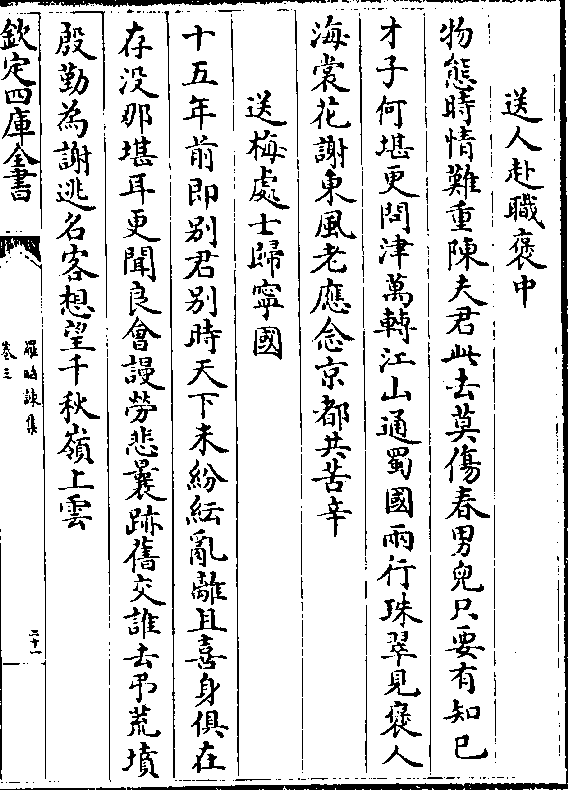 送人赴職褒中
物態時情難重陳夫君此去莫傷春男兒只要有知已
才子何堪更問津萬轉江山通蜀國兩行珠翠見褒人
海棠花謝東風老應念京都共苦辛
送梅處士歸寧國
十五年前即别君别時天下未紛紜亂離且喜身俱在
存没那堪耳更聞良會謾勞悲曩跡舊交誰去弔荒墳
殷勤為謝逃名客想望千秋嶺上雲
欽定四庫全書
羅昭諫集
卷三
二十一